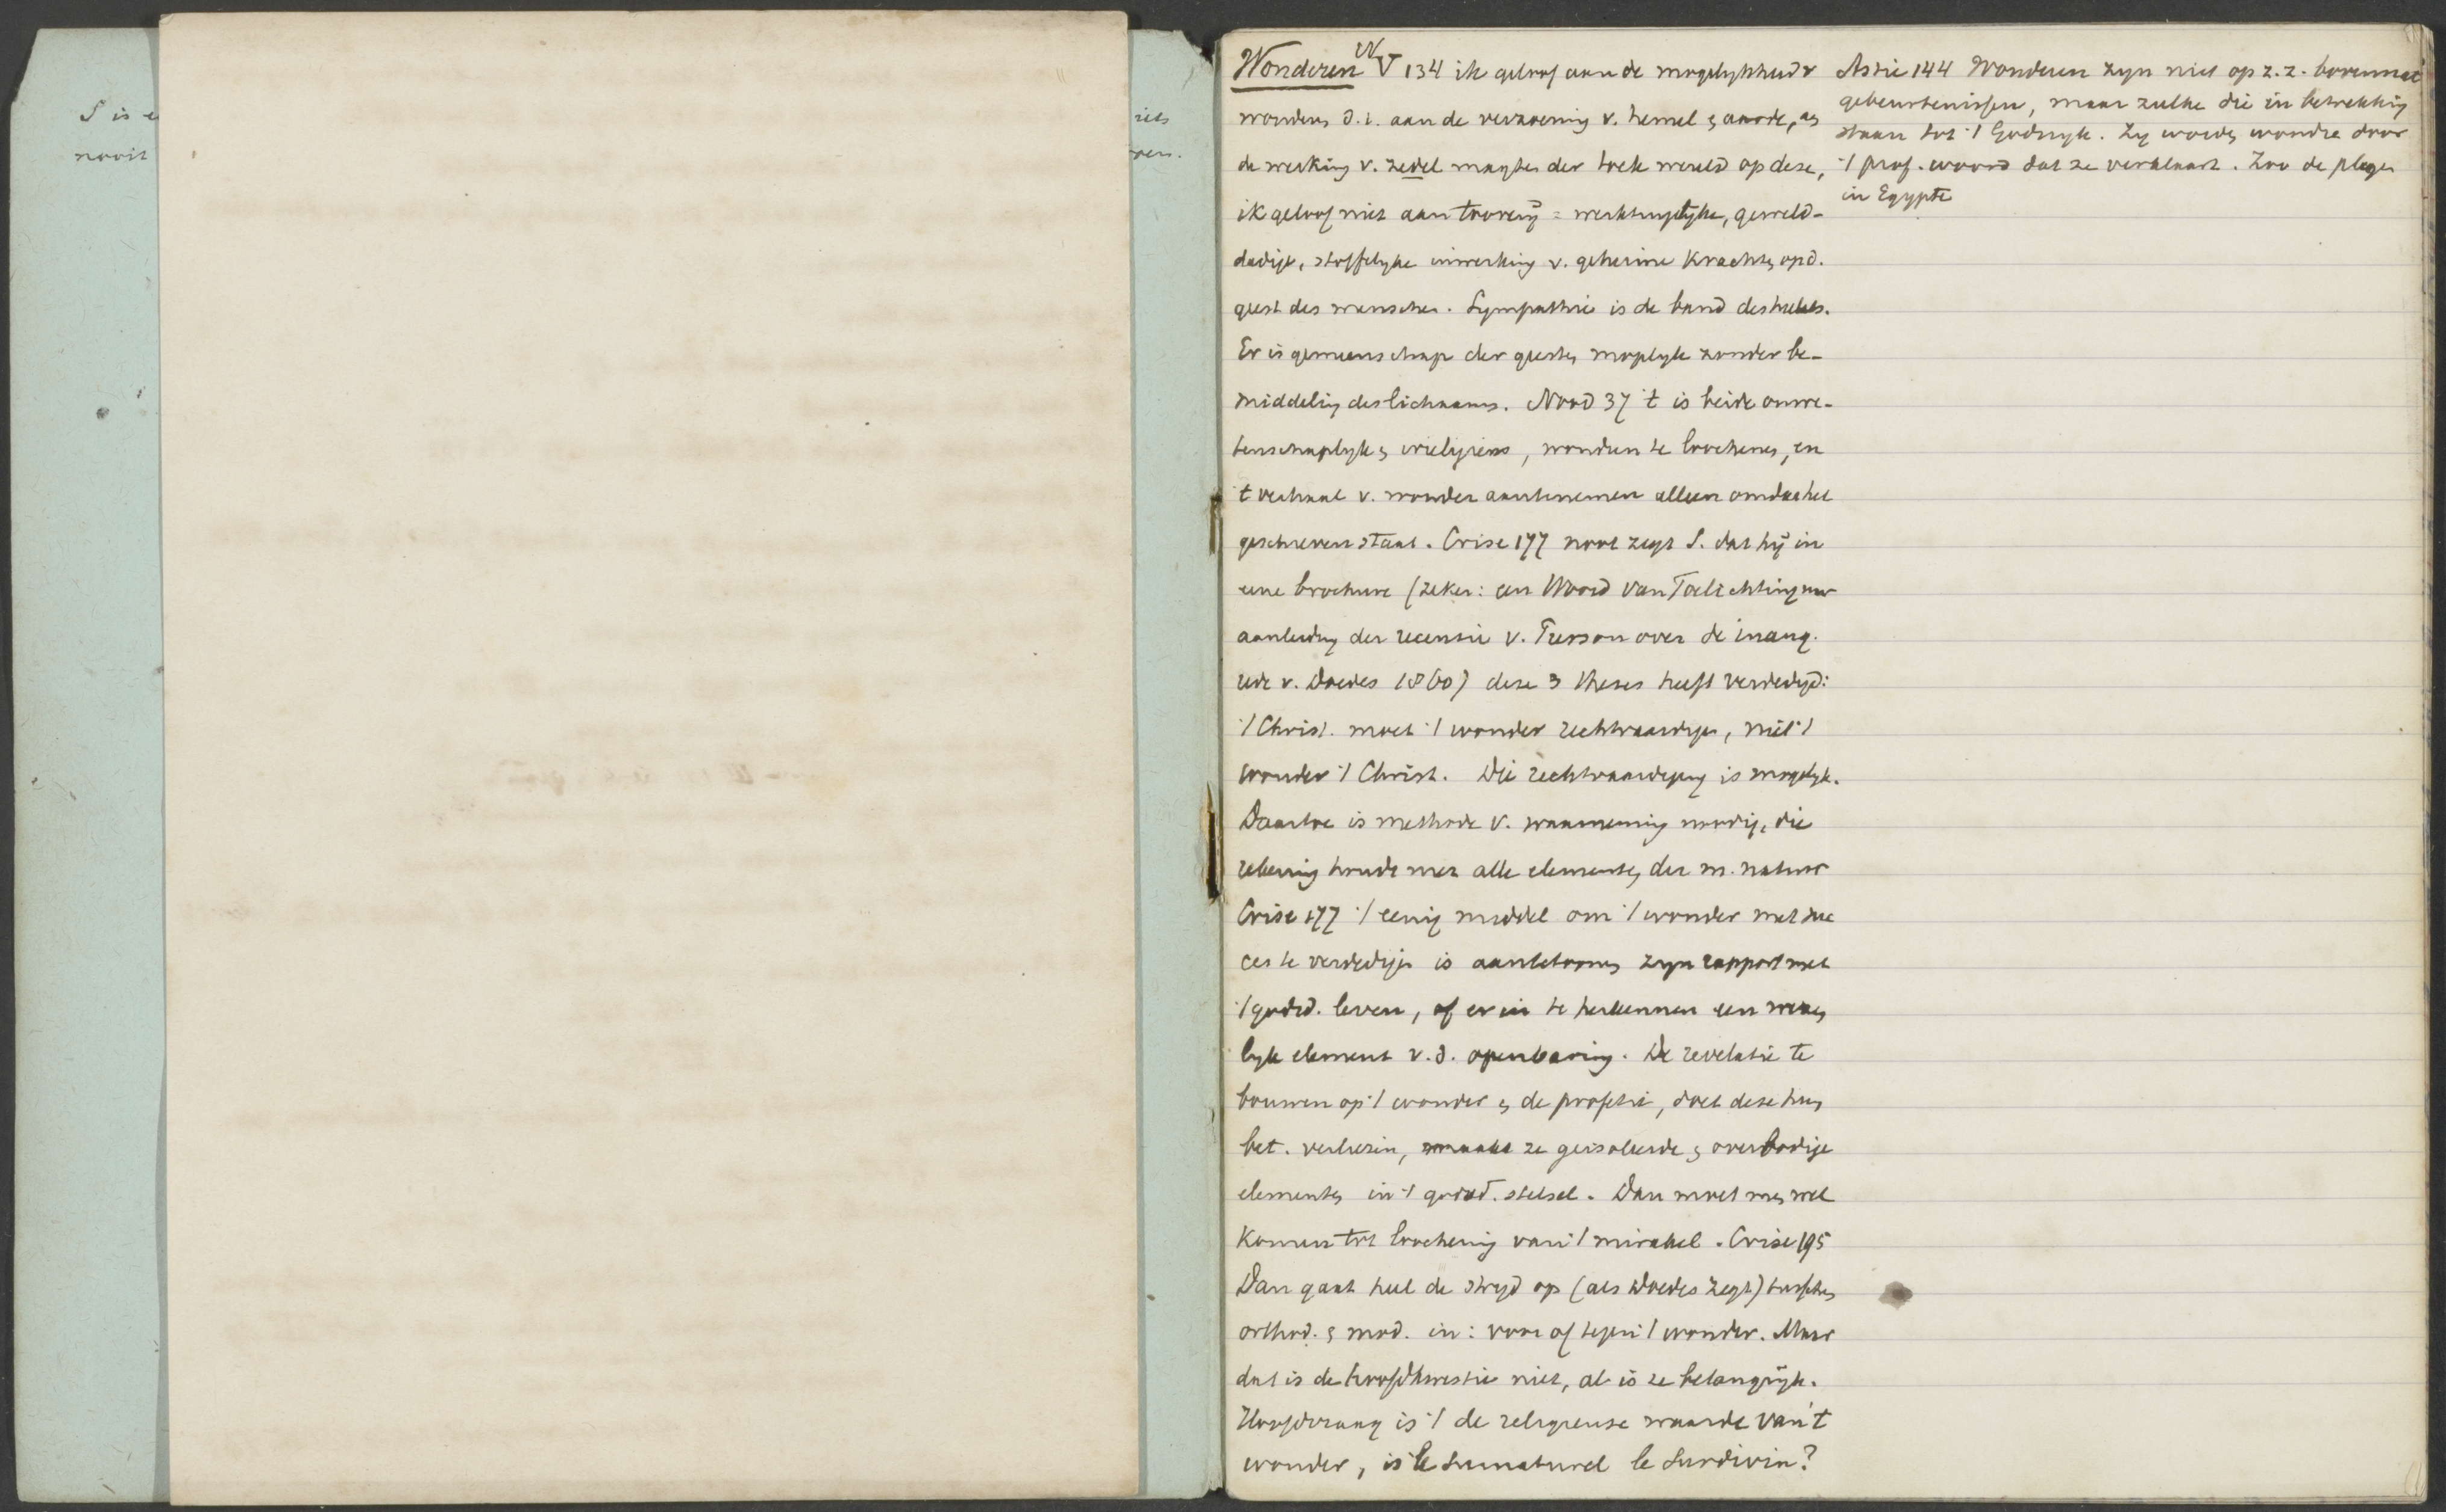 S is e
nooit
iets
ren.
Wonderen W V 134 ik geloof aan de mogelykheid v
wonders d.i. aan de verzoening v. hemel & aarde, aan
de werking v. zedel magten der hoele wereld op deze,
ik geloof niet aan toverij = werktuigelyke, geweld-
dadige, stoffelyke inwerking v. geheime Krachten op d.
geest des menschen. Sympathie is de band des heelals.
Er is gemeenschap der geesten mogelyk zonder be-
middeling des lichaams. Nood 37 't is beide onwe-
tenschaplyk & irreligieus, wonderen te loochenen, en
't verhaal v. wonder aantenemen alleen omdat het
geschreven staat. Crise 177 noot zegt S. dat hij in
eene brochure (zeker: een Woord van Toelichting naar
aanleiding der recensie v. Tresson over de inaug.
rede v. Doedes 1860) deze 3 theses heeft verdedigd:
't Christ. moet 't wonder rechtvaardigen, niet 't
wonder 't Christ. Die rechtvaardiging is mogelyk.
Daartoe is methode v. waarneming noodig, die
rekening houdt met alle elementen der m. natuur
Crise 177 't eenig middel om 't wonder met suc
ces te verdedigen is aantetoonen zyn rapport met
't godsd. leven, of er in te herkennen een wezen
lyk element v. d. openbaring. De revelatie te
bouwen op 't wonder & de profetie, doet deze hun
bet. verliezen, maakt ze geisoleerde & overbodige
elementen in 't godsd. stelsel. Dan moet men wel
komen tot loochening van 't mirakel. Crise 195
Dan gaat heel de stryd op (als Doedes zegt) tusschen
orthod. & mod. in: voor of tegen 't wonder. Maar
dat is de hoofdkwestie niet, al is ze belangrijk.
Hoofdvraag is 't de religieuse waarde van 't
wonder, is le surnaturel le surdivin?
Astié 144 Wonderen zyn niet op z. z. bovennat
gebeurtenissen, maar zulke die in betrekking
staan tot 't Godsryk. Zy worden wondre door
't prof. woord dat ze verklaart. Zoo de plagen
in Egypte